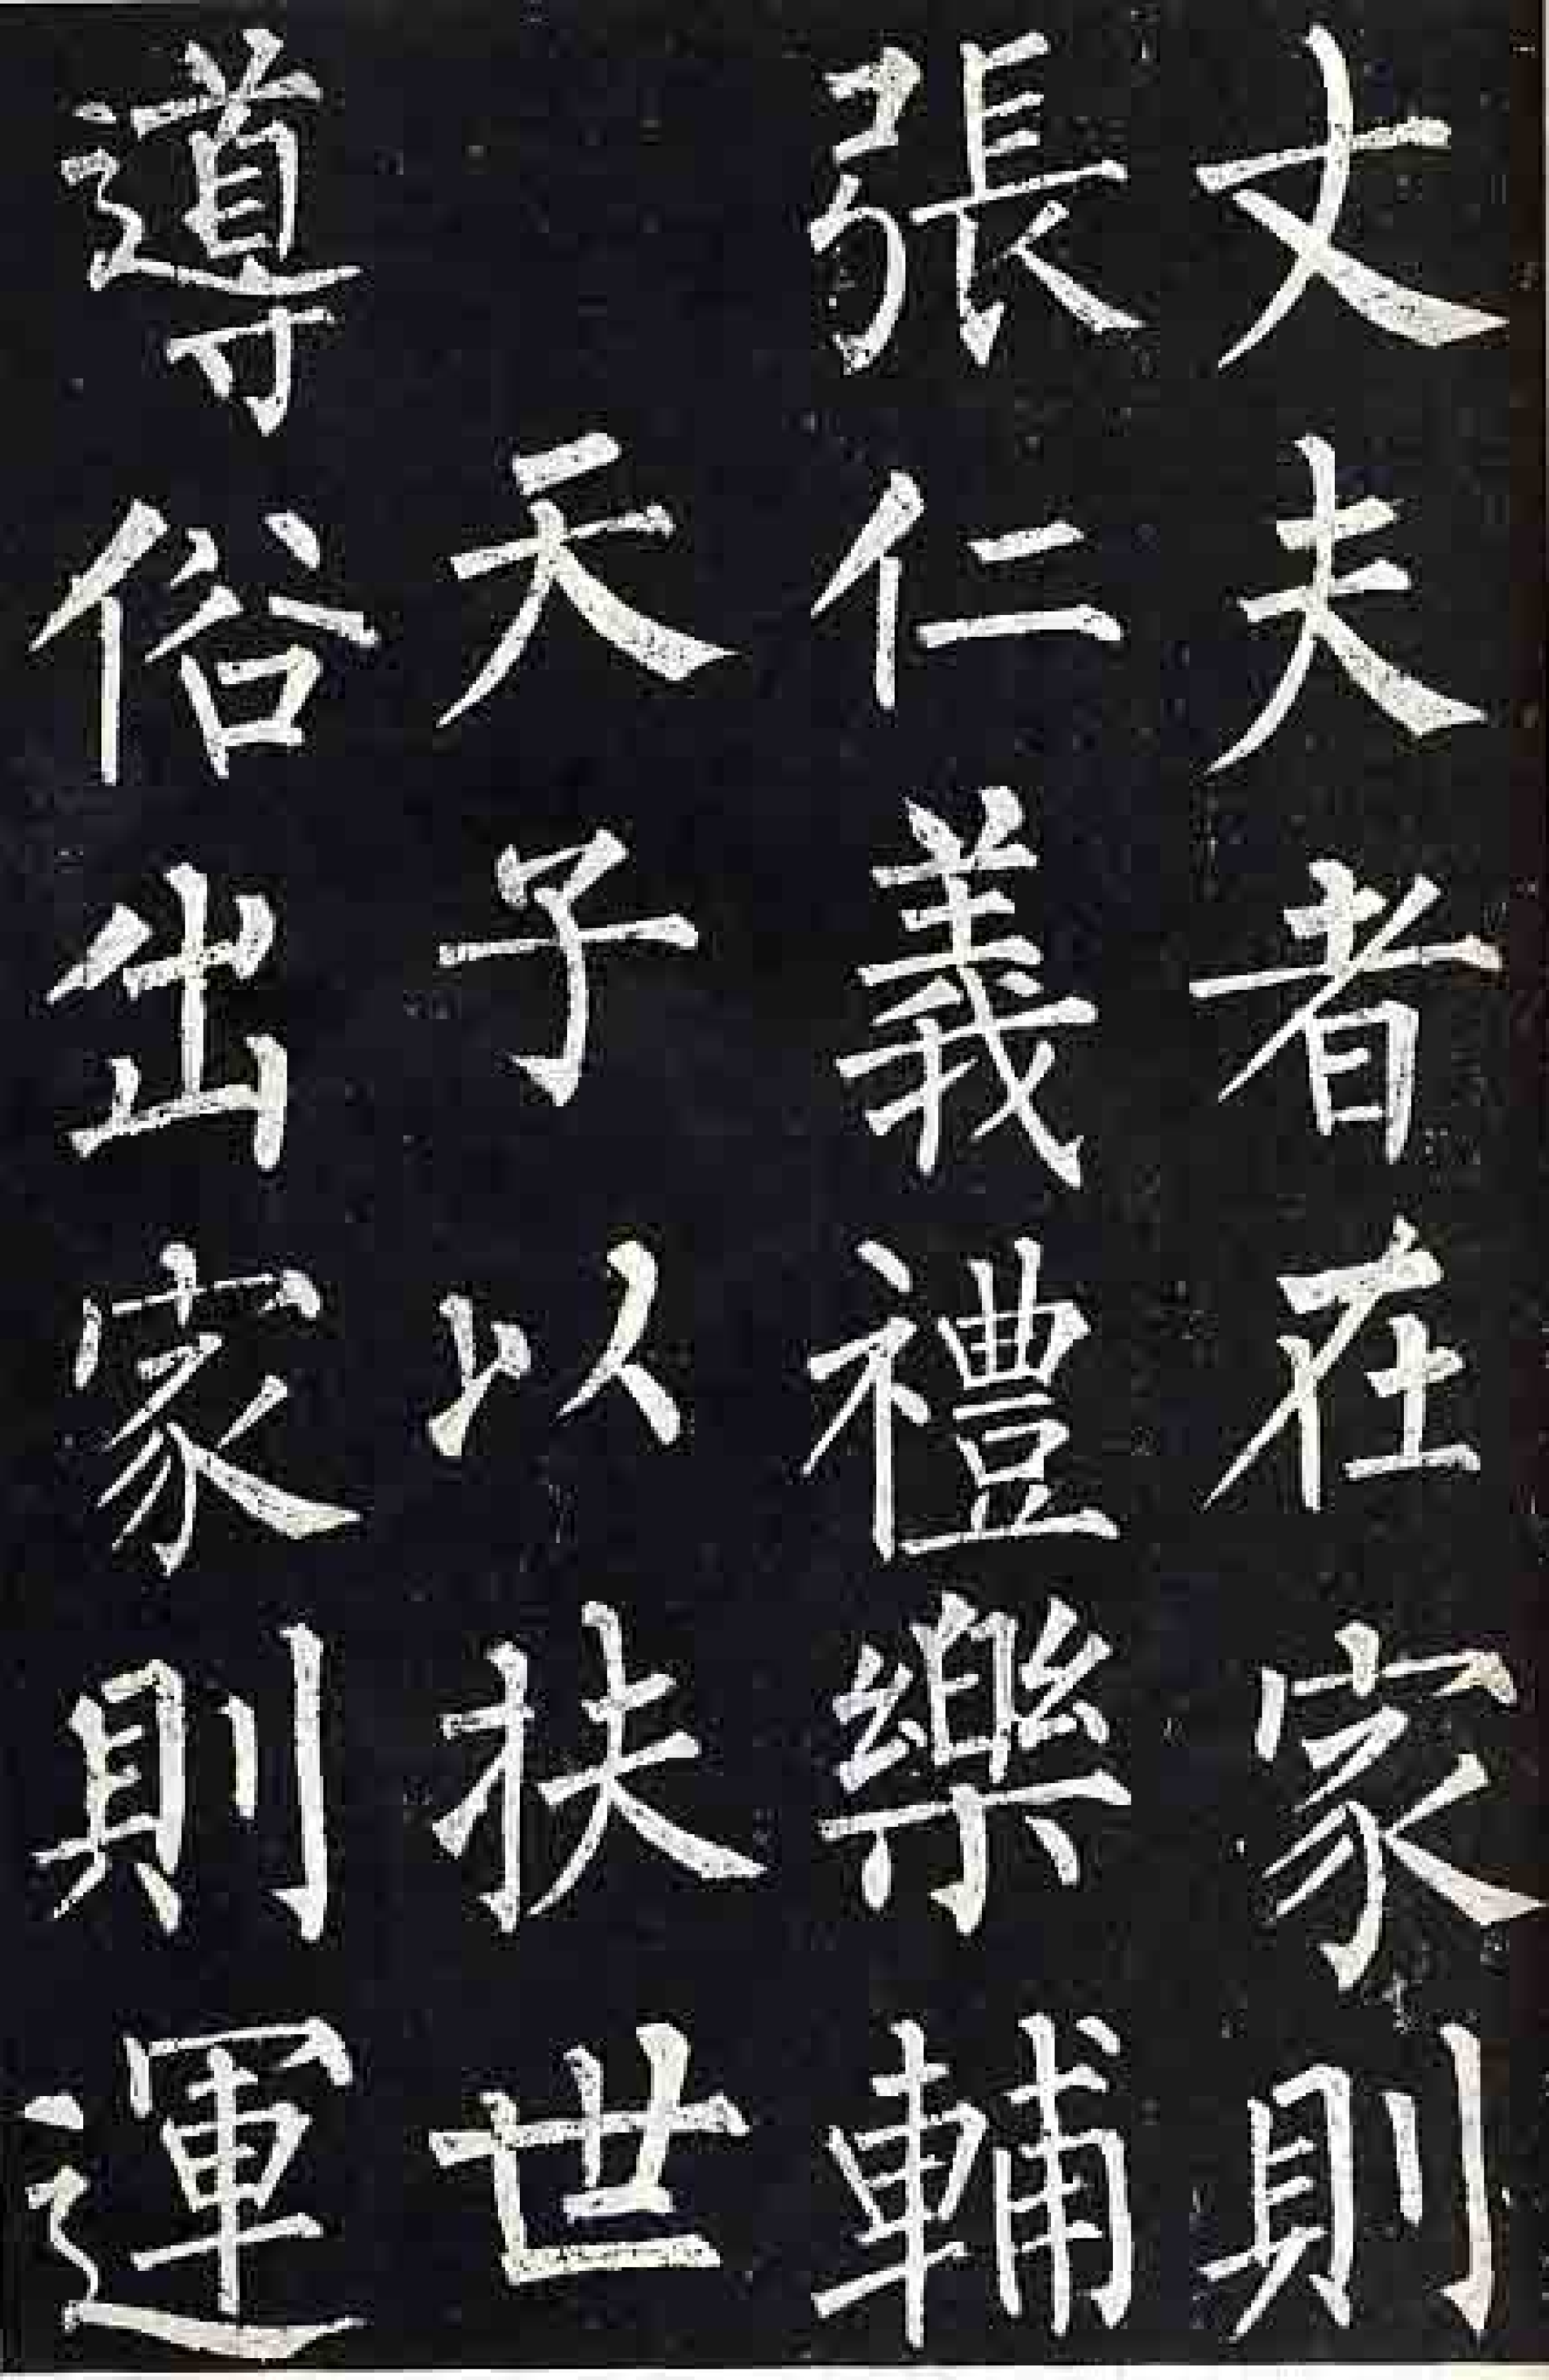 丈夫者在家則
張仁義禮樂輔
天子以扶世
導俗出家則運